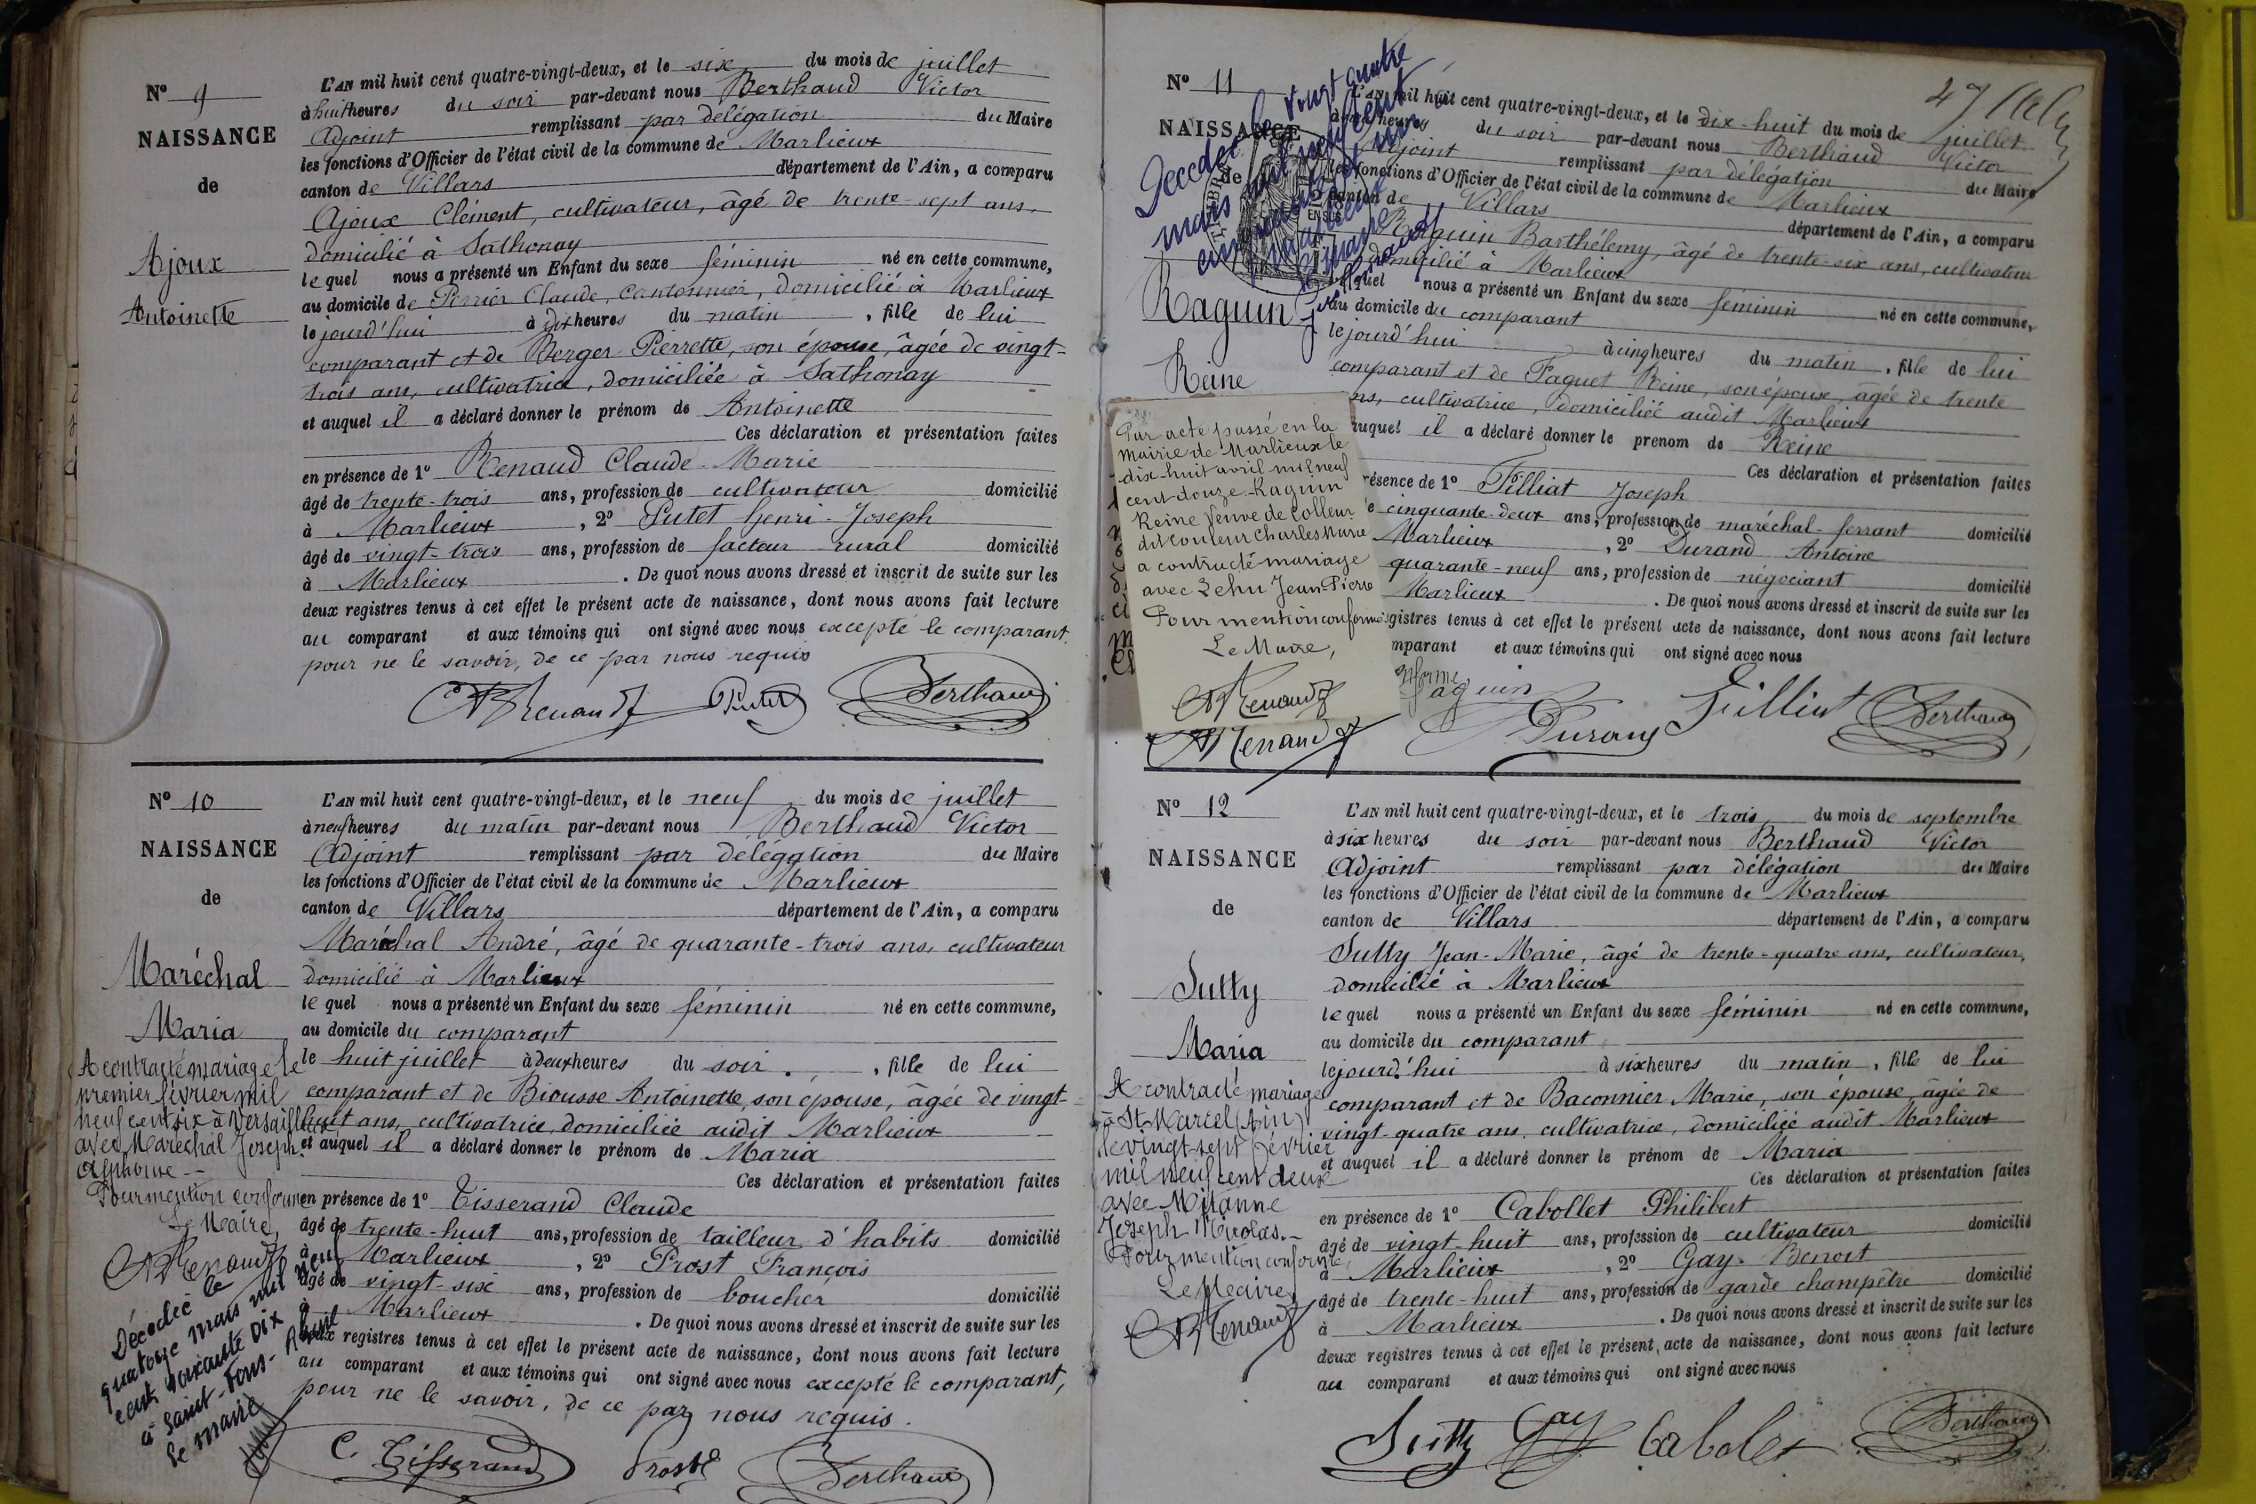 N° 9
NAISSANCE
de
Ajoux
Antoinette
L'AN mil huit cent quatre-vingt-deux, et le six du mois de juillet
à huit heures du soir par-devant nous Berthaud Victor
Adjoint remplissant par délégation du Maire
les fonctions d'Officier de l'état civil de la commune de Marlieux
canton de Villars département de l'Ain, a comparu
Ajoux Clément, cultivateur, âgé de trente-sept ans,
domicilié à Sathonay
lequel nous a présenté un Enfant du sexe féminin né en cette commune,
au domicile de Perrier Claude, Cantonnier, domicilié à Marlieux
le jourd'hui à dix heures du matin, fille de lui
comparant et de Berger Pierrette, son épouse, âgée de vingt-
trois ans, cultivatrice, domiciliée à Sathonay
et auquel il a déclaré donner le prénom de Antoinette
Ces déclaration et présentation faites
en présence de 1° Renaud Claude-Marie
âgé de trente-trois ans, profession de cultivateur domicilié
à Marlieux, 2° Putet henri-Joseph
âgé de vingt-trois ans, profession de facteur rural domicilié
à Marlieux. De quoi nous avons dressé et inscrit de suite sur les
deux registres tenus à cet effet le présent acte de naissance, dont nous avons fait lecture
au comparant et aux témoins qui ont signé avec nous excepté le comparant
pour ne le savoir, de ce par nous requis
Renaud Putet Berthaud
N° 10
NAISSANCE
de
Maréchal
Maria
A contracté mariage le
premier février mil
neuf cent six à Versailleux
avec Maréchal Joseph
Alphonse
Pour mention conforme
Le Maire
Renaud
Décédée le
quatorze mars mil neuf
cent soixante dix
à Saint-Fons-Rhône
Le maire
L'AN mil huit cent quatre-vingt-deux, et le neuf du mois de juillet
à neuf heures du matin par-devant nous Berthaud Victor
Adjoint remplissant par délégation du Maire
les fonctions d'Officier de l'état civil de la commune de Marlieux
canton de Villars département de l'Ain, a comparu
Maréchal André, âgé de quarante-trois ans, cultivateur
domicilié à Marlieux
lequel nous a présenté un Enfant du sexe féminin né en cette commune,
au domicile du comparant
le huit juillet à deux heures du soir, fille de lui
comparant et de Biousse Antoinette, son épouse, âgée de vingt-
huit ans, cultivatrice, domiciliée audit Marlieux
et auquel il a déclaré donner le prénom de Maria
Ces déclaration et présentation faites
en présence de 1° Tisserand Claude
âgé de trente-huit ans, profession de tailleur d'habits domicilié
à Marlieux, 2° Prost François
âgé de vingt-six ans, profession de boucher domicilié
à Marlieux. De quoi nous avons dressé et inscrit de suite sur les
deux registres tenus à cet effet le présent acte de naissance, dont nous avons fait lecture
au comparant et aux témoins qui ont signé avec nous excepté le comparant,
pour ne le savoir, de ce par nous requis.
C. Tisserand Prost Berthaud
N° 11
NAISSANCE
de
Raguin
Reine
Décédée le vingt quatre
mars mil neuf cent
cinquante et un
à Marlieux
Le Maire
Par acte passé en la
mairie de Marlieux le
dix-huit avril mil neuf
cent douze Raguin
Reine veuve de Colleur
dit Couleur Charles Marie
a contracté mariage
avec Lehu Jean-Pierre
Pour mention conforme
Le Maire,
Renaud
Renaud
L'AN mil huit cent quatre-vingt-deux, et le dix-huit du mois de juillet
heures du soir par-devant nous Berthaud Victor
Adjoint remplissant par délégation du Maire
les fonctions d'Officier de l'état civil de la commune de Marlieux
canton de Villars département de l'Ain, a comparu
Raguin Barthélemy, âgé de trente-six ans, cultivateur
domicilié à Marlieux
lequel nous a présenté un Enfant du sexe féminin né en cette commune,
au domicile du comparant
le jourd'hui à cinq heures du matin, fille de lui
comparant et de Faguet Reine, son épouse, âgée de trente
ns, cultivatrice, domiciliée audit Marlieux
auquel il a déclaré donner le prénom de Reine
Ces déclaration et présentation faites
résence de 1° Filliat Joseph
é cinquante-deux ans, profession de maréchal-ferrant domicilié
Marlieux, 2° Durand Antoine
quarante-neuf ans, profession de négociant domicilié
Marlieux. De quoi nous avons dressé et inscrit de suite sur les
gistres tenus à cet effet le présent acte de naissance, dont nous avons fait lecture
mparant et aux témoins qui ont signé avec nous
Raguin Durand Filliat Berthaud
N° 12
NAISSANCE
de
Sutty
Maria
A contracté mariage
à St Marcel (Ain)
le vingt-sept février
mil neuf cent deux
avec Mitanne
Joseph Nicolas.-
Pour mention conforme,
Le Maire,
Renaud
L'AN mil huit cent quatre-vingt-deux, et le trois du mois de septembre
à six heures du soir par-devant nous Berthaud Victor
Adjoint remplissant par délégation du Maire
les fonctions d'Officier de l'état civil de la commune de Marlieux
canton de Villars département de l'Ain, a comparu
Sutty Jean-Marie, âgé de trente-quatre ans, cultivateur,
domicilié à Marlieux
lequel nous a présenté un Enfant du sexe féminin né en cette commune,
au domicile du comparant
le jourd'hui à six heures du matin, fille de lui
comparant et de Baconnier Marie, son épouse, âgée de
vingt-quatre ans, cultivatrice, domiciliée audit Marlieux
et auquel il a déclaré donner le prénom de Maria
Ces déclaration et présentation faites
en présence de 1° Cabollet Philibert
âgé de vingt-huit ans, profession de cultivateur domicilié
à Marlieux, 2° Gay Benoit
âgé de trente-huit ans, profession de garde champêtre domicilié
à Marlieux. De quoi nous avons dressé et inscrit de suite sur les
deux registres tenus à cet effet le présent acte de naissance, dont nous avons fait lecture
au comparant et aux témoins qui ont signé avec nous
Sutty Gay Cabolet Berthaud